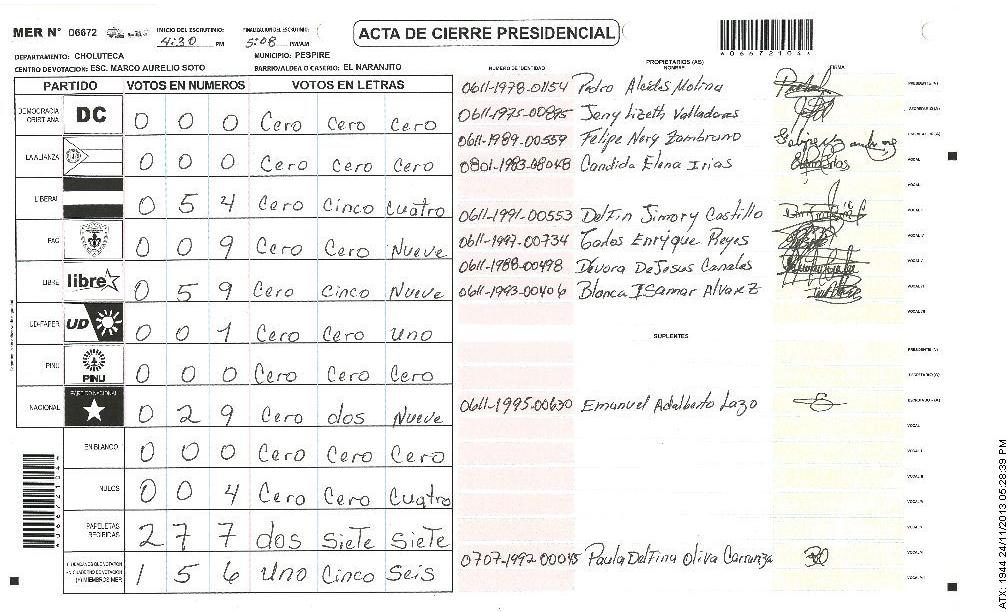 MER N° 06672
INICIO DEL ESCRUTINIO: 4:30 PM
FINALIZACION DEL ESCRUTINIO: 5:08 PM/AM
ACTA DE CIERRE PRESIDENCIAL
DEPARTAMENTO: CHOLUTECA
MUNICIPIO: PESPIRE
CENTRO DE VOTACION: ESC. MARCO AURELIO SOTO
BARRIO/ALDEA O CASERIO: EL NARANJITO
PARTIDO VOTOS EN NUMEROS VOTOS EN LETRAS
DEMOCRACIA CRISTIANA DC 0 0 0 Cero Cero Cero
LA ALIANZA 0 0 0 Cero Cero Cero
LIBERAL 0 5 4 Cero Cinco Cuatro
PAC 0 0 9 Cero Cero Nueve
LIBRE libre 0 5 9 Cero Cinco Nueve
UD-FAPER UD 0 0 1 Cero Cero Uno
PINU PINU 0 0 0 Cero Cero Cero
NACIONAL PARTIDO NACIONAL 0 2 9 Cero dos Nueve
EN BLANCO 0 0 0 Cero Cero Cero
NULOS 0 0 4 Cero Cero Cuatro
PAPELETAS RECIBIDAS 2 7 7 dos Siete Siete
1 5 6 Uno Cinco Seis
NUMERO DE IDENTIDAD
PROPIETARIOS (AS)
NOMBRE
FIRMA
0611-1978-01154 Pedro Alcides Molina PRESIDENTE (A)
0611-1975-00895 Jeny Lizeth Valladares SECRETARIO (A)
0611-1989-00559 Felipe Nery Zambrano
0801-1983-08048 Candida Elena Irias VOCAL
0611-1991-00553 Delfin Jimory Castillo
0611-1997-00734 Carlos Enrique Reyes
0611-1988-00498 Devora De Jesus Canales
0611-1993-00406 Blanca Isamar Alvarez
SUPLENTES
PRESIDENTE (A)
SECRETARIO (A)
0611-1995-00630 Emanuel Adalberto Lazo
0707-1992-00045 Paula Delfina Oliva Carranza
ATX: 1944 24/11/2013 05:28:39 PM